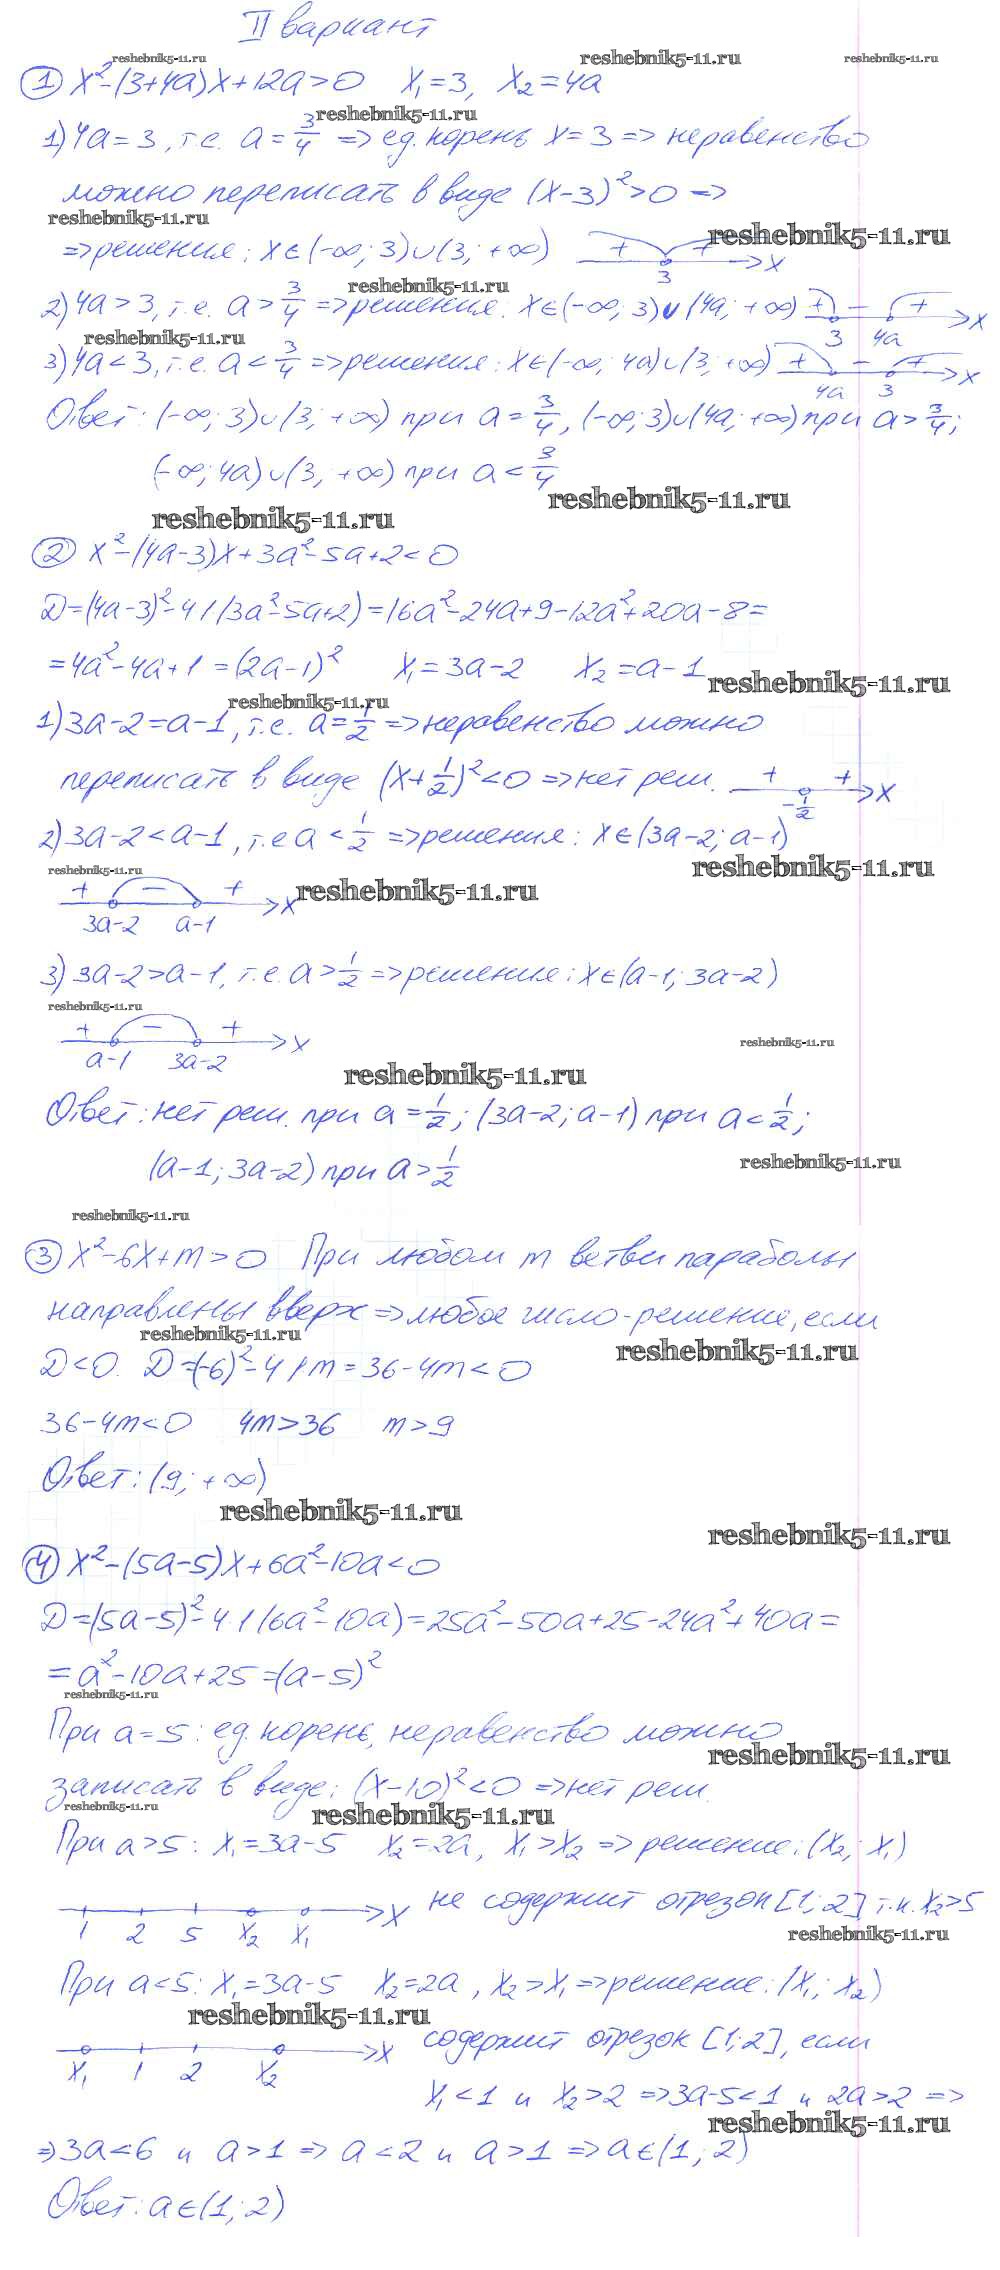 II вариант
reshebnik5-11.ru reshebnik5-11.ru reshebnik5-11.ru
① x²-(3+4a)x+12a>0 x₁=3, x₂=4a
reshebnik5-11.ru
1) 4a=3, т.е. a=3/4 => ед. корень x=3 => неравенство
можно переписать в виде (x-3)²>0 =>
reshebnik5-11.ru
=> решения: x∈(-∞; 3)∪(3; +∞) + + 3 x
reshebnik5-11.ru
reshebnik5-11.ru
2) 4a>3, т.е. a>3/4 => решения: x∈(-∞; 3)∪(4a; +∞) + - + 3 4a x
reshebnik5-11.ru
3) 4a<3, т.е. a<3/4 => решения: x∈(-∞; 4a)∪(3; +∞) + - + 4a 3 x
Ответ: (-∞; 3)∪(3; +∞) при a=3/4, (-∞; 3)∪(4a; +∞) при a>3/4;
(-∞; 4a)∪(3; +∞) при a<3/4
reshebnik5-11.ru
reshebnik5-11.ru
② x²-(4a-3)x+3a²-5a+2<0
D=(4a-3)²-4·1·(3a²-5a+2)=16a²-24a+9-12a²+20a-8=
=4a²-4a+1=(2a-1)² x₁=3a-2 x₂=a-1
reshebnik5-11.ru
reshebnik5-11.ru
1) 3a-2=a-1, т.е. a=1/2 => неравенство можно
переписать в виде (x+1/2)²<0 => нет реш. + + -1/2 x
2) 3a-2<a-1, т.е a<1/2 => решения: x∈(3a-2; a-1)
reshebnik5-11.ru
reshebnik5-11.ru reshebnik5-11.ru
+ - + x
3a-2 a-1
3) 3a-2>a-1, т.е. a>1/2 => решения: x∈(a-1; 3a-2)
reshebnik5-11.ru
+ - + x
a-1 3a-2
reshebnik5-11.ru
reshebnik5-11.ru
Ответ: нет реш. при a=1/2; (3a-2; a-1) при a<1/2;
(a-1; 3a-2) при a>1/2
reshebnik5-11.ru
reshebnik5-11.ru
③ x²-6x+m>0 При любом m ветви параболы
направлены вверх => любое число - решение, если
reshebnik5-11.ru
reshebnik5-11.ru
D<0. D=(-6)²-4·1·m=36-4m<0
36-4m<0 4m>36 m>9
Ответ: (9; +∞)
reshebnik5-11.ru
reshebnik5-11.ru
④ x²-(5a-5)x+6a²-10a<0
D=(5a-5)²-4·1·(6a²-10a)=25a²-50a+25-24a²+40a=
=a²-10a+25=(a-5)²
reshebnik5-11.ru
При a=5: ед. корень, неравенство можно
reshebnik5-11.ru
записать в виде: (x-10)²<0 => нет реш.
reshebnik5-11.ru
reshebnik5-11.ru
При a>5: x₁=3a-5 x₂=2a, x₁>x₂ => решение: (x₂; x₁)
1 2 5 x₂ x₁ x не содержит отрезок [1; 2], т.к. x₂>5
reshebnik5-11.ru
При a<5: x₁=3a-5 x₂=2a, x₂>x₁ => решение: (x₁; x₂)
reshebnik5-11.ru
x₁ 1 2 x₂ x содержит отрезок [1; 2], если
x₁<1 и x₂>2 => 3a-5<1 и 2a>2 =>
reshebnik5-11.ru
=> 3a<6 и a>1 => a<2 и a>1 => a∈(1; 2)
Ответ: a∈(1; 2)